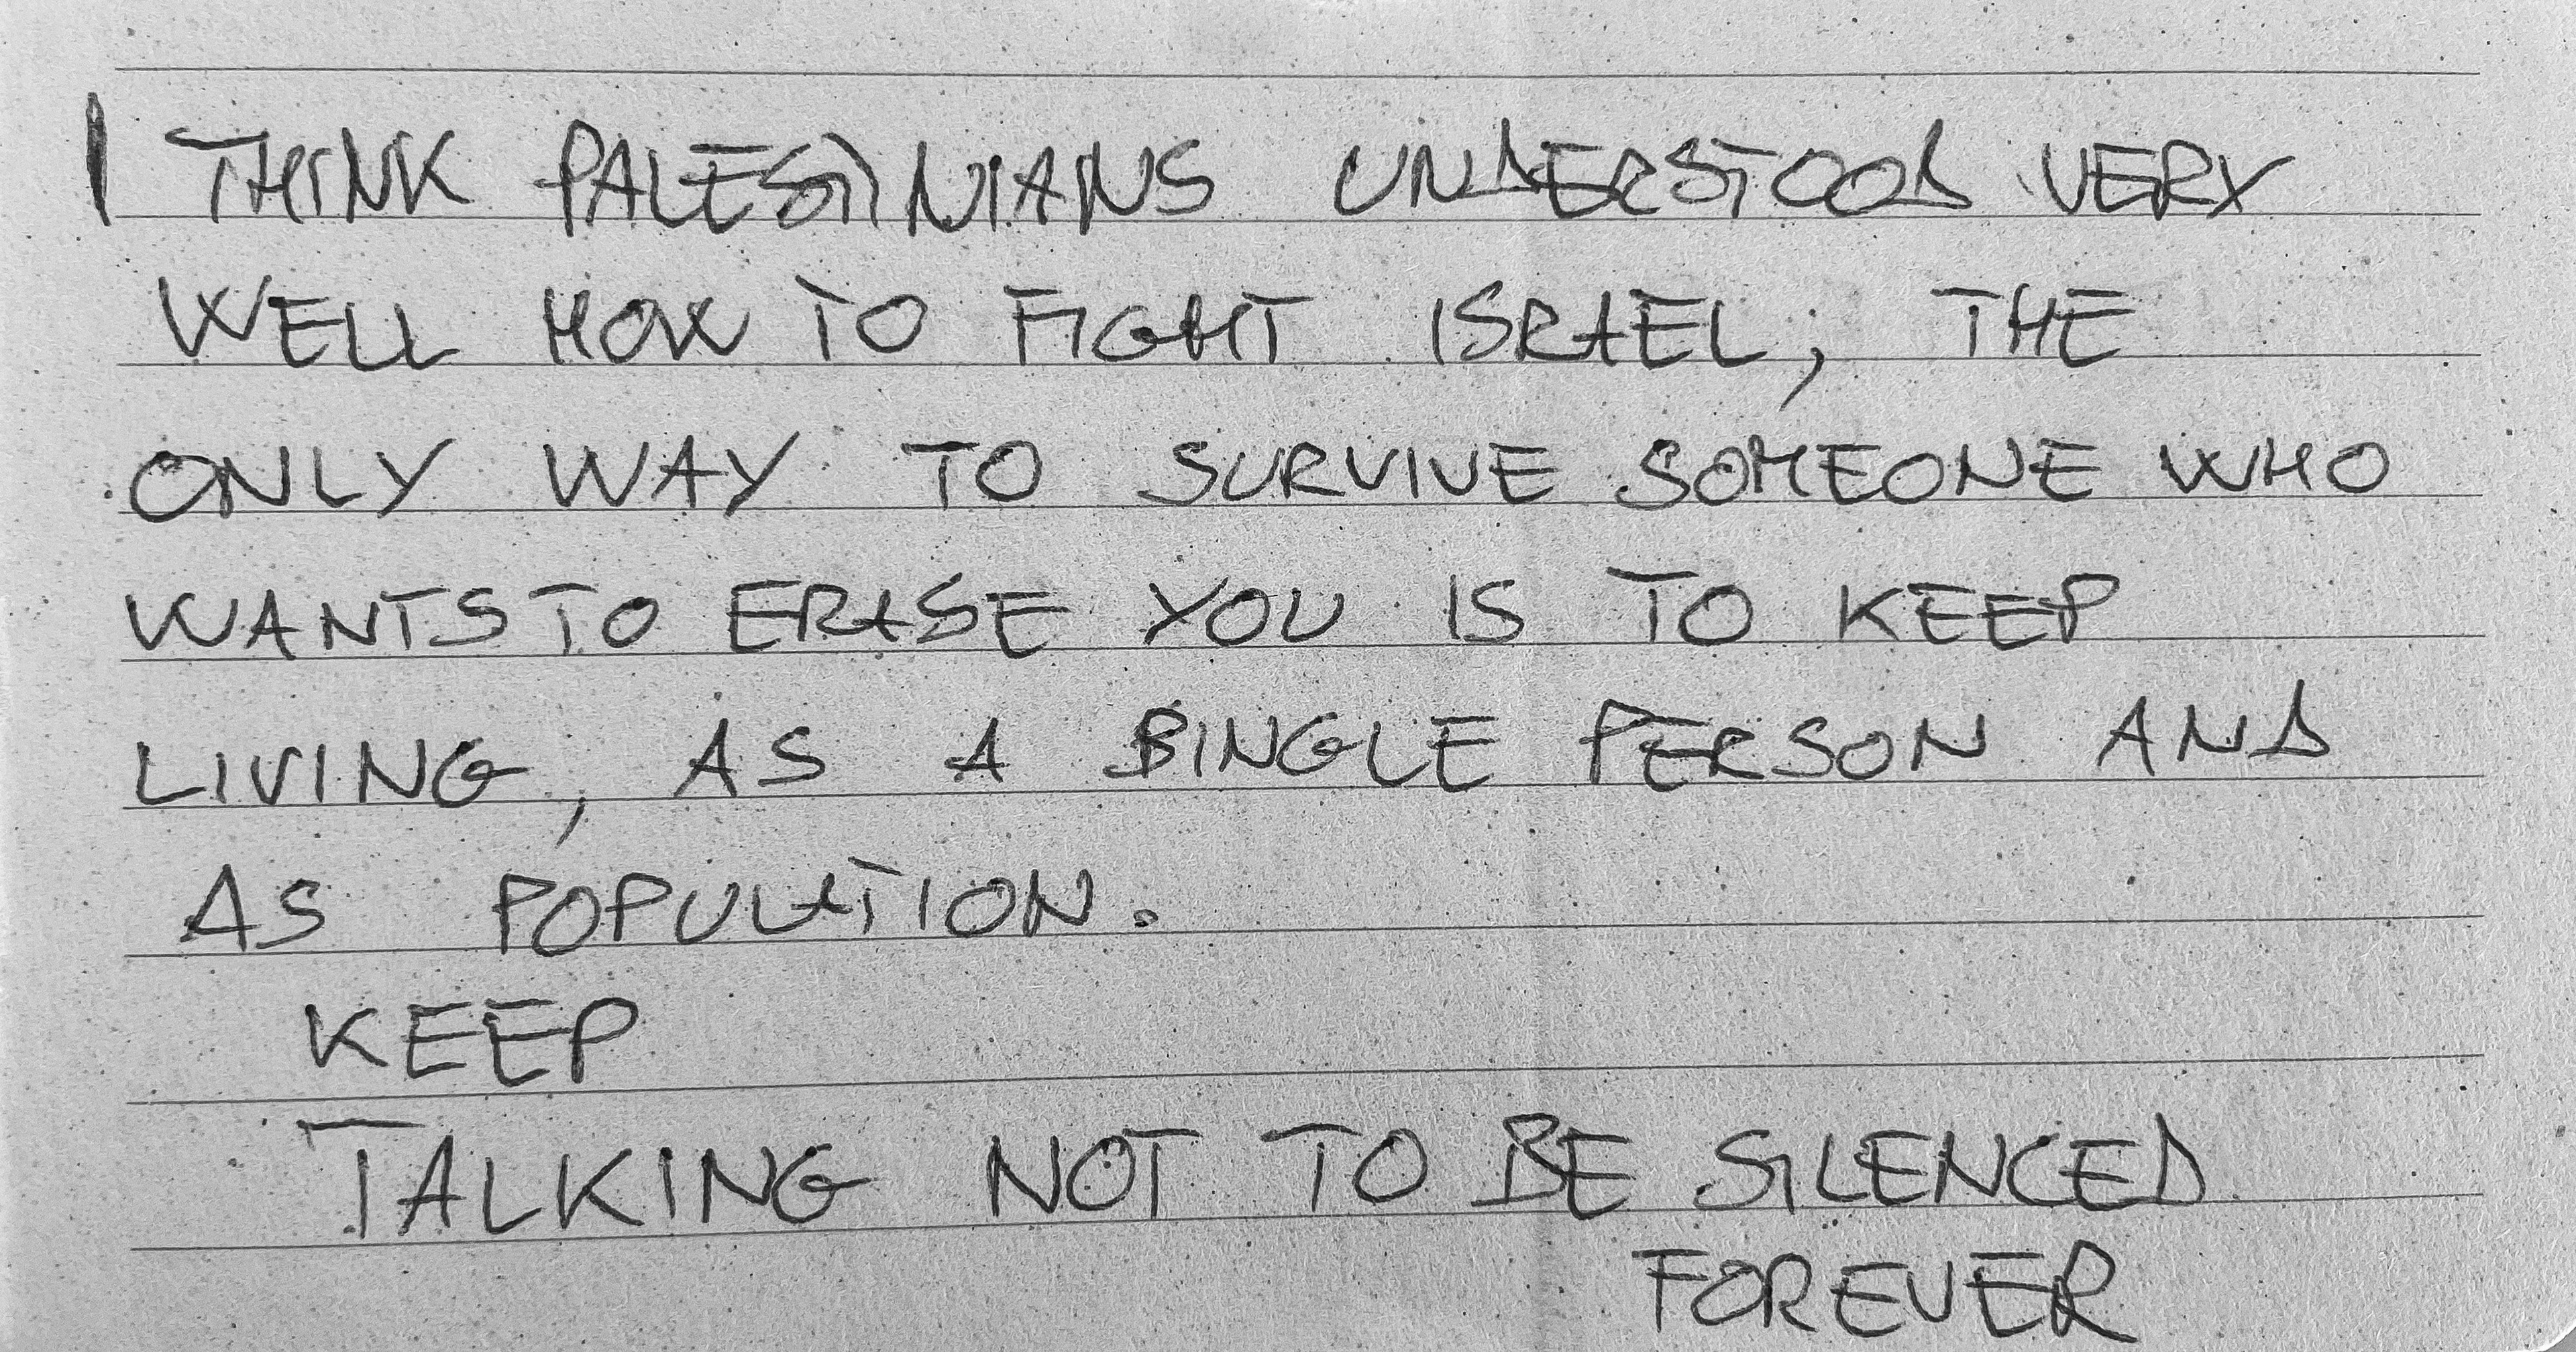 I THINK PALESTINIANS UNDERSTOOD VERY
WELL HOW TO FIGHT ISRAEL; THE
ONLY WAY TO SURVIVE SOMEONE WHO
WANTS TO ERASE YOU IS TO KEEP
LIVING, AS A SINGLE PERSON AND
AS POPULATION.
KEEP
TALKING NOT TO BE SILENCED
FOREVER